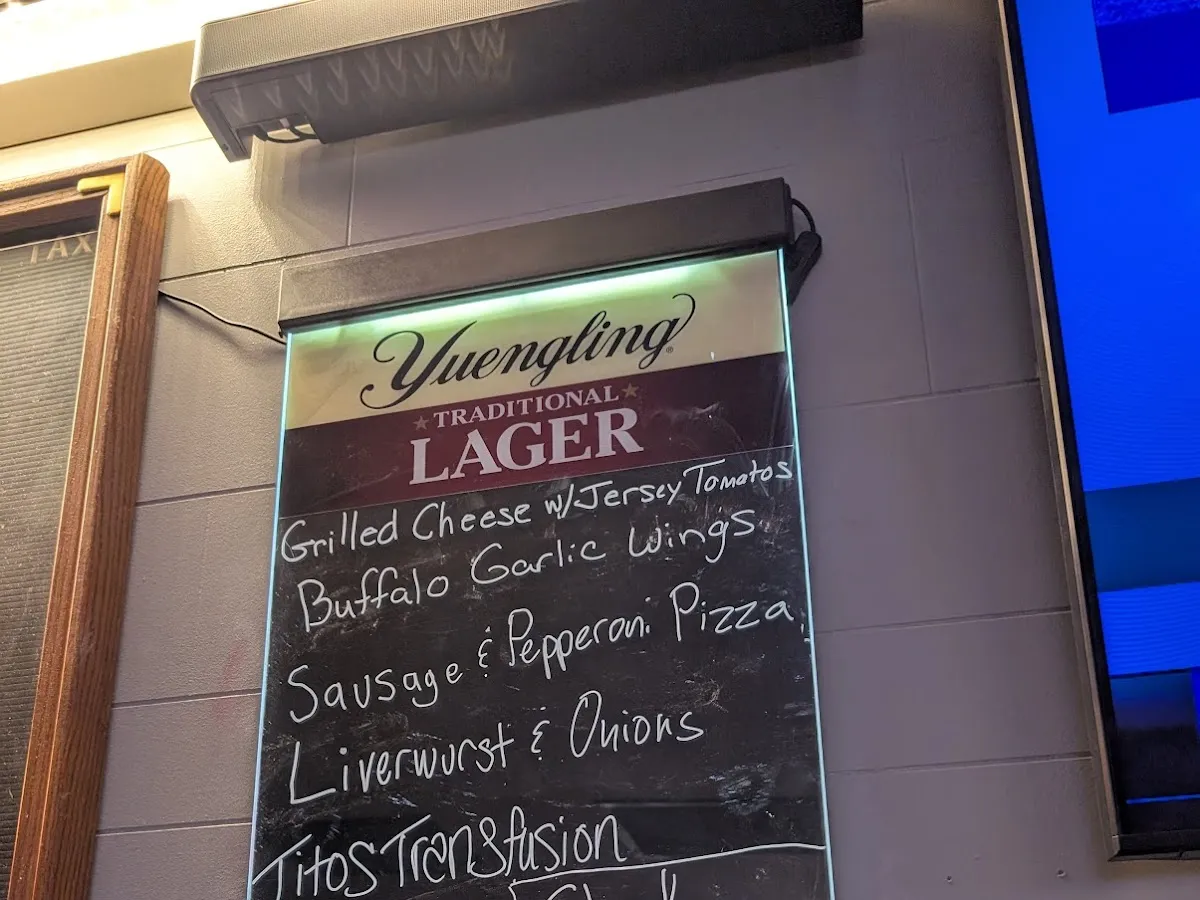 TAX
Yuengling®
TRADITIONAL
LAGER
Grilled Cheese w/Jersey Tomatos
Buffalo Garlic Wings
Sausage & Pepperoni Pizza
Liverwurst & Onions
Titos Transfusion